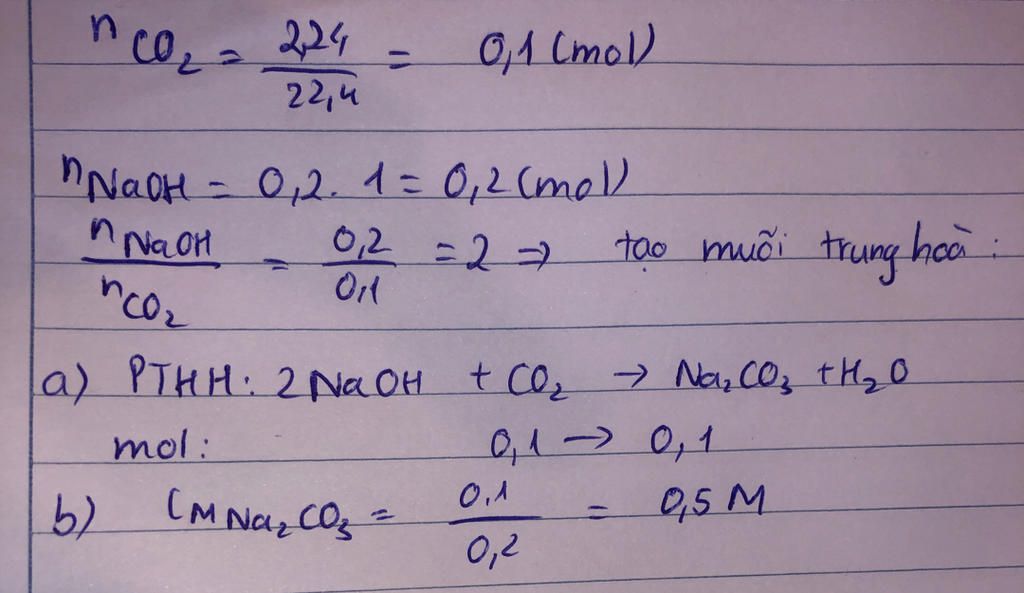 nCO₂ = 2,24/22,4 = 0,1 (mol)
nNaOH = 0,2 . 1 = 0,2 (mol)
nNaOH/nCO₂ = 0,2/0,1 = 2 ⇒ tạo muối trung hoà :
a) PTHH: 2NaOH + CO₂ → Na₂CO₃ + H₂O
mol: 0,1 → 0,1
b) CM Na₂CO₃ = 0,1/0,2 = 0,5 M